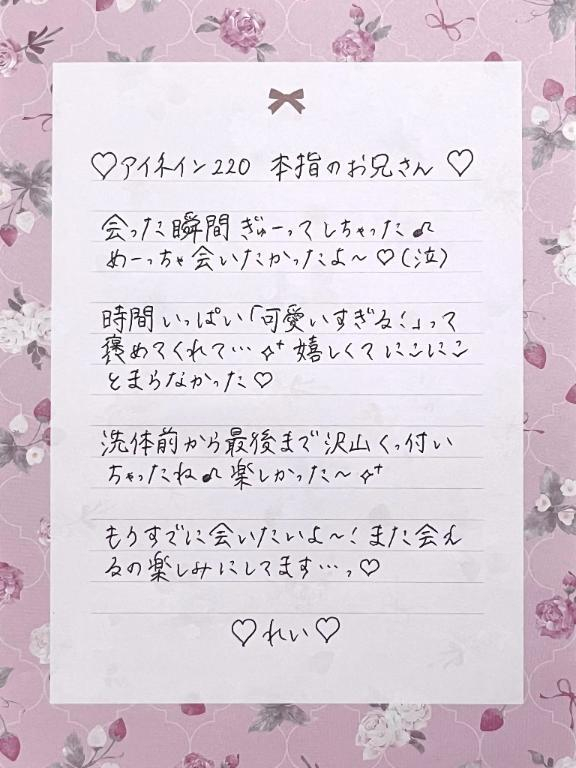 ♡アイネイン220 本指のお兄さん♡
会った瞬間ぎゅーってしちゃった♪
めーっちゃ会いたかったよ〜♡(泣)
時間いっぱい「可愛いすぎる!」って
褒めてくれて…✧⁺ 嬉しくてにこにこ
とまらなかった♡
洗体前から最後まで沢山くっ付い
ちゃったね♪楽しかった〜✧⁺
もうすでに会いたいよ〜!また会え
るの楽しみにしてます…っ♡
♡れい♡